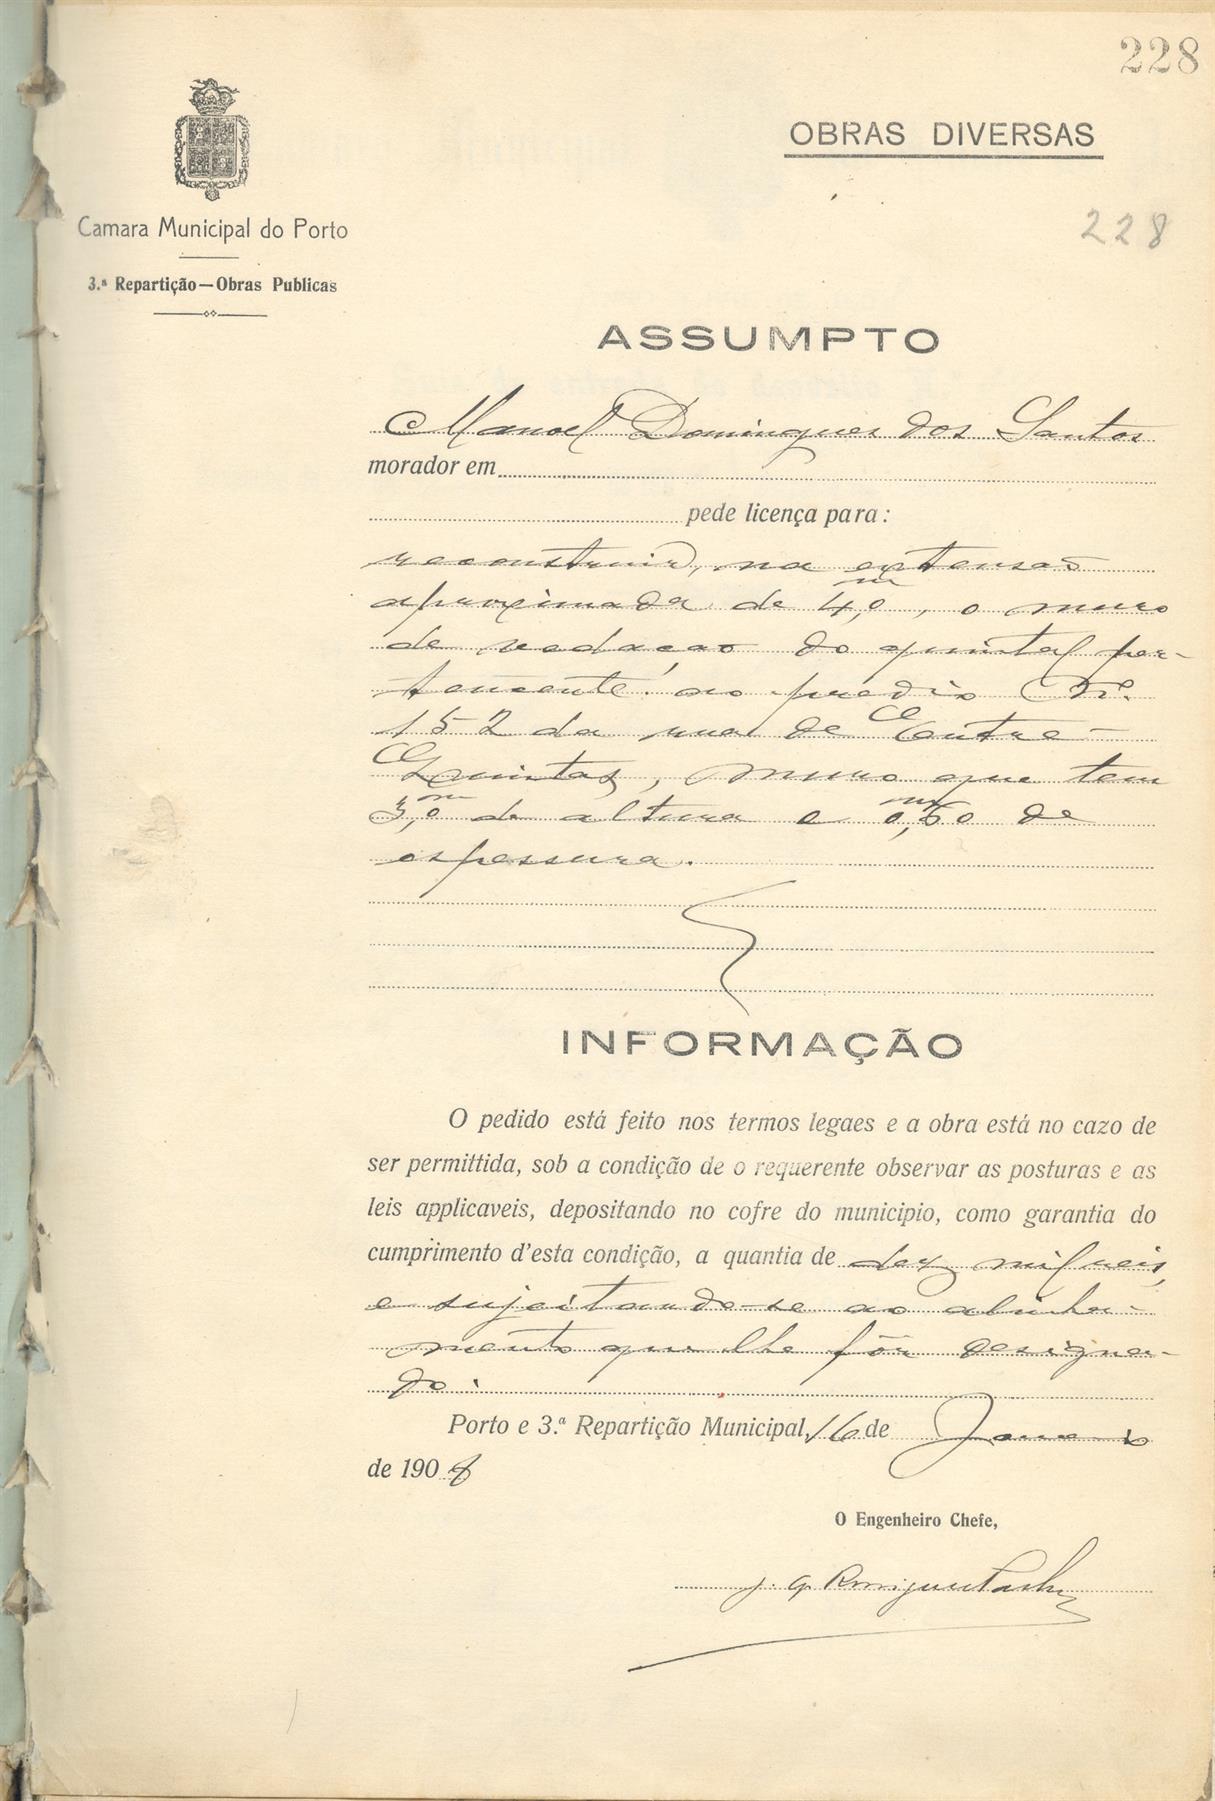 228
OBRAS DIVERSAS
Camara Municipal do Porto
228
3.ª Repartição—Obras Publicas
ASSUMPTO
Manoel Domingues dos Santos
morador em
pede licença para:
reconstruir, na extensão
aproximada de 4,m0, o muro
de vedação do quintal per-
tencente ao predio Nº
152 da rua de Entre-
Quintas, muro que tem
3,m0 de altura e 0,m50 de
espessura.
INFORMAÇÃO
O pedido está feito nos termos legaes e a obra está no cazo de
ser permittida, sob a condição de o requerente observar as posturas e as
leis applicaveis, depositando no cofre do municipio, como garantia do
cumprimento d'esta condição, a quantia de dez mil reis,
e sujeitando-se ao alinha-
mento que lhe fôr designa-
do.
Porto e 3.ª Repartição Municipal, 16 de Janeiro
de 1908
O Engenheiro Chefe,
J. G.